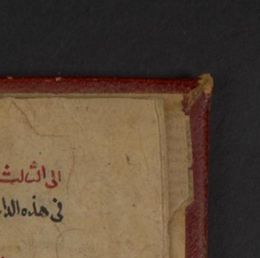 الى الثالث
فى هذه الدا